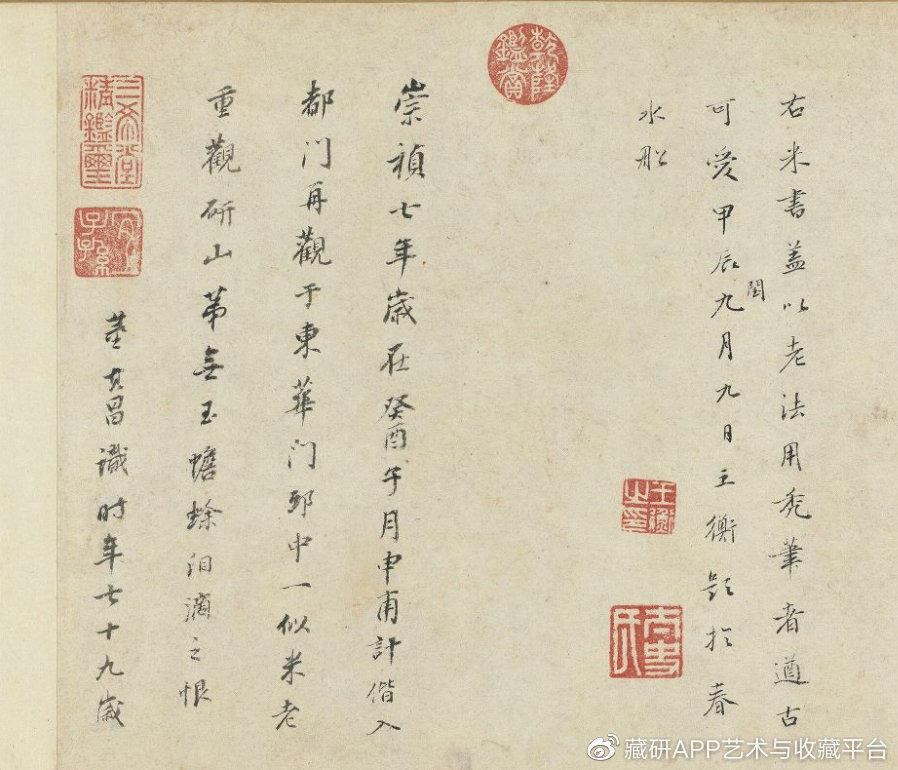 右米書蓋以老法用禿筆者遒古
可愛甲辰閏九月九日王衡題於春
水船
王衡之印
乾隆鑑賞
崇禎七年歲在癸酉子月申甫計偕入
都門再觀于東華門邸中一似米老
重觀研山第無玉蟾蜍泪滴之恨
董其昌識時年七十九歲
三希堂精鑑璽
宜子孫
藏研APP艺术与收藏平台